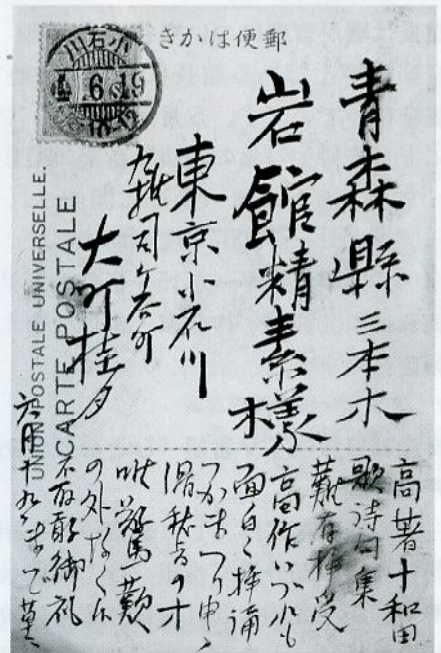 郵便はかき
小石川
6 19
UNION POSTALE UNIVERSELLE.
CARTE POSTALE
青森縣三本木
岩館精素様
東京小石川
雑司ヶ谷町
大町桂月
高著十和田
歌詩句集
難有拝受
高作いづれも
面白く拝誦
つかまつり申
唯驚歎
の外なく
不取敢御礼
六月十九